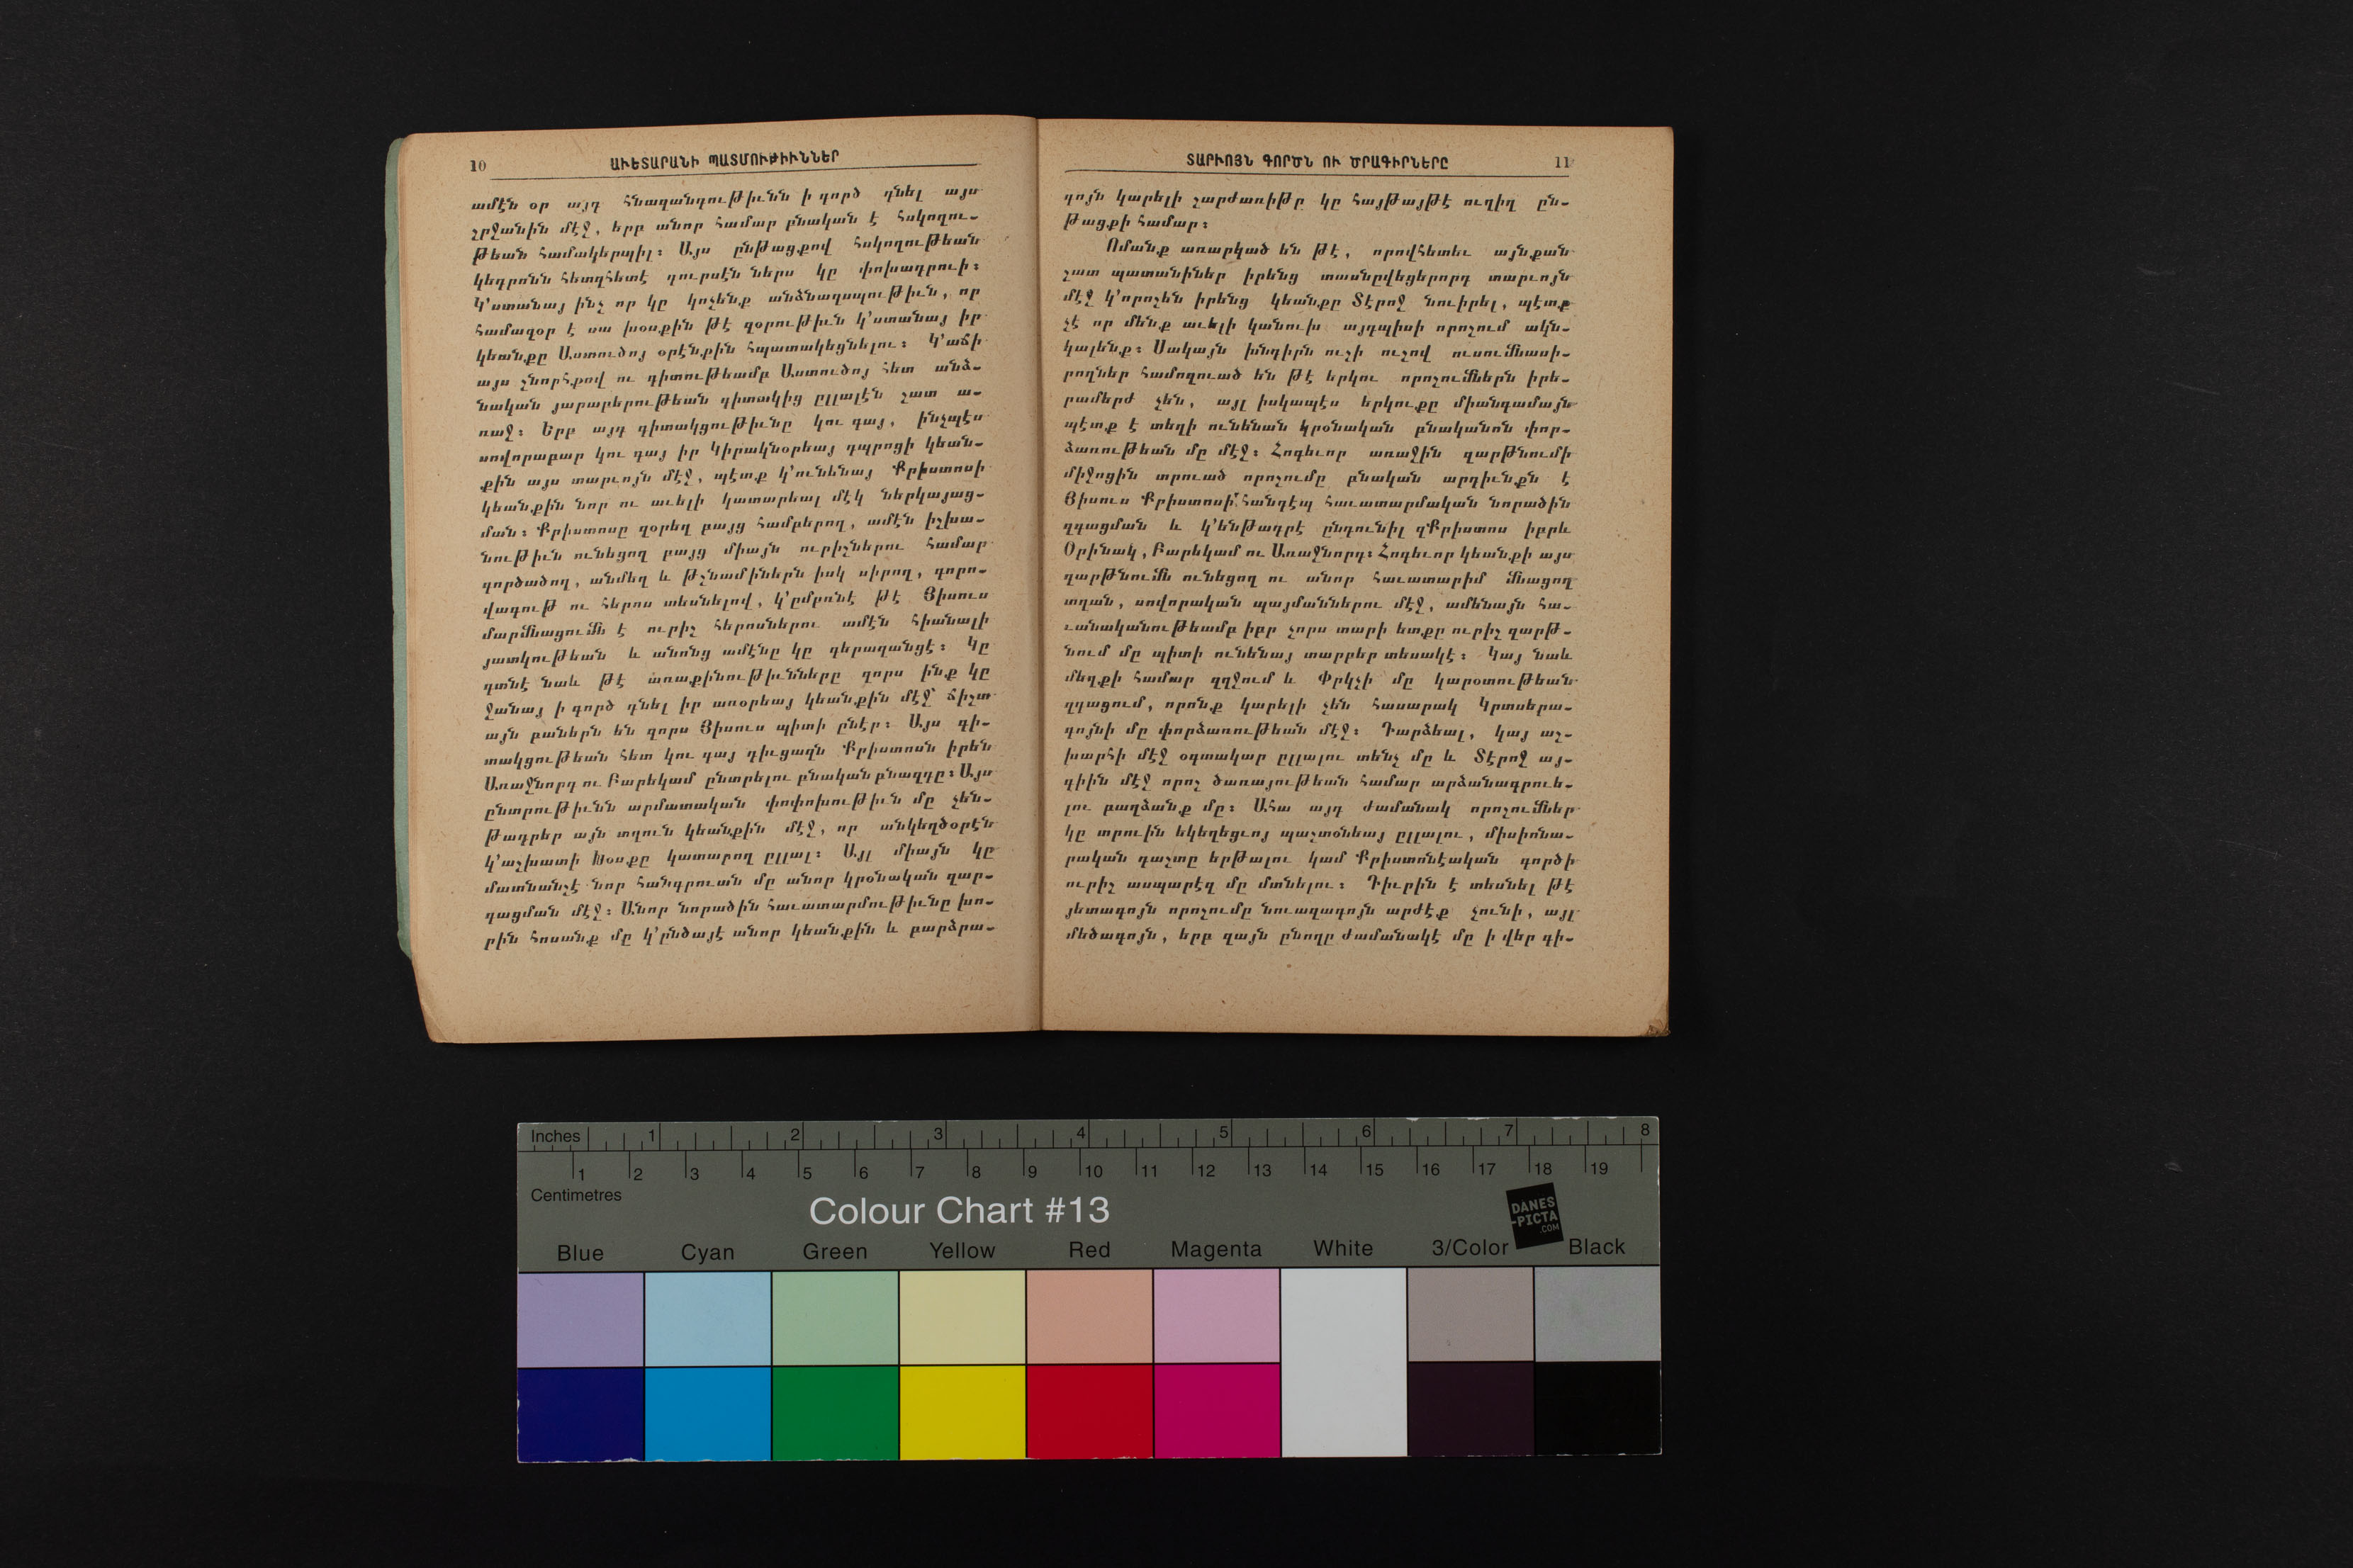 10 ԱՒԵՏԱՐԱՆԻ ՊԱՏՄՈՒԹԻՒՆՆԵՐ
ամէն օր այդ հնազանդութիւնն ի գործ դնել այս
շրջանին մէջ, երբ անոր համար բնական է հսկողու-
թեան համակերպիլ։ Այս ընթացքով հսկողութեան
կեդրոնն հետզհետէ դուրսէն ներս կը փոխադրուի։
Կ՚ստանայ ինչ որ կը կոչենք անձնազսպութիւն, որ
համազօր է սա խօսքին թէ զօրութիւն կ՚ստանայ իր
կեանքը Աստուծոյ օրէնքին հպատակեցնելու։ Կ՚աճի
այս շնորհքով ու գիտութեամբ Աստուծոյ հետ անձ-
նական յարաբերութեան գիտակից ըլլալէն շատ ա-
ռաջ։ Երբ այդ գիտակցութիւնը կու գայ, ինչպէս
սովորաբար կու գայ իր Կիրակնօրեայ դպրոցի կեան-
քին այս տարւոյն մէջ, պէտք կ՚ունենայ Քրիստոսի
կեանքին նոր ու աւելի կատարեալ մէկ ներկայաց-
ման։ Քրիստոսը զօրեղ բայց համբերող, ամէն իշխա-
նութիւն ունեցող բայց միայն ուրիշներու համար
գործածող, անմեղ և թշնամիներն իսկ սիրող, գորո-
վագութ ու հերոս տեսնելով, կ՚ըմբռնէ թէ Յիսուս
մարմնացումն է ուրիշ հերոսներու ամէն հիանալի
յատկութեան և անոնց ամէնը կը գերազանցէ։ Կը
գտնէ նաև թէ առաքինութիւնները զորս ինք կը
ջանայ ի գործ դնել իր առօրեայ կեանքին մէջ՝ ճիշտ
այն բաներն են զորս Յիսուս պիտի ընէր։ Այս գի-
տակցութեան հետ կու գայ դիւցազն Քրիստոսն իրեն
Առաջնորդ ու Բարեկամ ընտրելու բնական բնազդը։ Այս
ընտրութիւնն արմատական փոփոխութիւն մը չեն-
թադրեր այն տղուն կեանքին մէջ, որ անկեղծօրէն
կ՚աշխատի Խօսքը կատարող ըլլալ։ Այլ միայն կը
մատնանշէ նոր հանգրուան մը անոր կրօնական զար-
գացման մէջ։ Անոր նորածին հաւատարմութիւնը խո-
րին հոսանք մը կ՚ընծայէ անոր կեանքին և բարձրա-
ՏԱՐՒՈՅՆ ԳՈՐԾՆ ՈՒ ԾՐԱԳԻՐՆԵՐԸ 11
գոյն կարելի շարժառիթը կը հայթայթէ ուղիղ ըն-
թացքի համար։
Ոմանք առարկած են թէ, որովհետեւ այնքան
շատ պատանիներ իրենց տասնըվեցերորդ տարւոյն
մէջ կ՚որոշեն իրենց կեանքը Տէրոջ նուիրել, պէտք
չէ որ մենք աւելի կանուխ այդպիսի որոշում ակն-
կալենք։ Սակայն խնդիրն ուշի ուշով ուսումնասի-
րողներ համոզուած են թէ երկու որոշումներն իրե-
րամերժ չեն, այլ իսկապէս երկուքը միանգամայն
պէտք է տեղի ունենան կրօնական բնականոն փոր-
ձառութեան մը մէջ։ Հոգեւոր առաջին զարթնումի
միջոցին տրուած որոշումը բնական արդիւնքն է
Յիսուս Քրիստոսի՝ հանդէպ հաւատարմական նորածին
զգացման և կ՚ենթադրէ ընդունիլ զՔրիստոս իբրև
Օրինակ, Բարեկամ ու Առաջնորդ։ Հոգեւոր կեանքի այս
զարթնումն ունեցող ու անոր հաւատարիմ մնացող
տղան, սովորական պայմաններու մէջ, ամենայն հա-
ւանականութեամբ իբր չորս տարի ետքը ուրիշ զարթ-
նում մը պիտի ունենայ տարբեր տեսակէ։ Կայ նաև
մեղքի համար զղջում և Փրկչի մը կարօտութեան
զգացում, որոնք կարելի չեն հասարակ Կրտսերա-
գոյնի մը փորձառութեան մէջ։ Դարձեալ, կայ աշ-
խարհի մէջ օգտակար ըլլալու տենչ մը և Տէրոջ այ-
գիին մէջ որոշ ծառայութեան համար արձանագրուե-
լու բաղձանք մը։ Ահա այդ ժամանակ որոշումներ
կը տրուին եկեղեցւոյ պաշտօնեայ ըլլալու, միսիոնա-
րական դաշտը երթալու կամ Քրիստոնէական գործի
ուրիշ ասպարէզ մը մտնելու։ Դիւրին է տեսնել թէ
յետագոյն որոշումը նուազագոյն արժէք չունի, այլ
մեծագոյն, երբ զայն ընողը ժամանակէ մը ի վեր գի-
Inches 1 2 3 4 5 6 7 8
1 2 3 4 5 6 7 8 9 10 11 12 13 14 15 16 17 18 19
Centimetres
Colour Chart #13
DANES
-PICTA
.COM
Blue Cyan Green Yellow Red Magenta White 3/Color Black